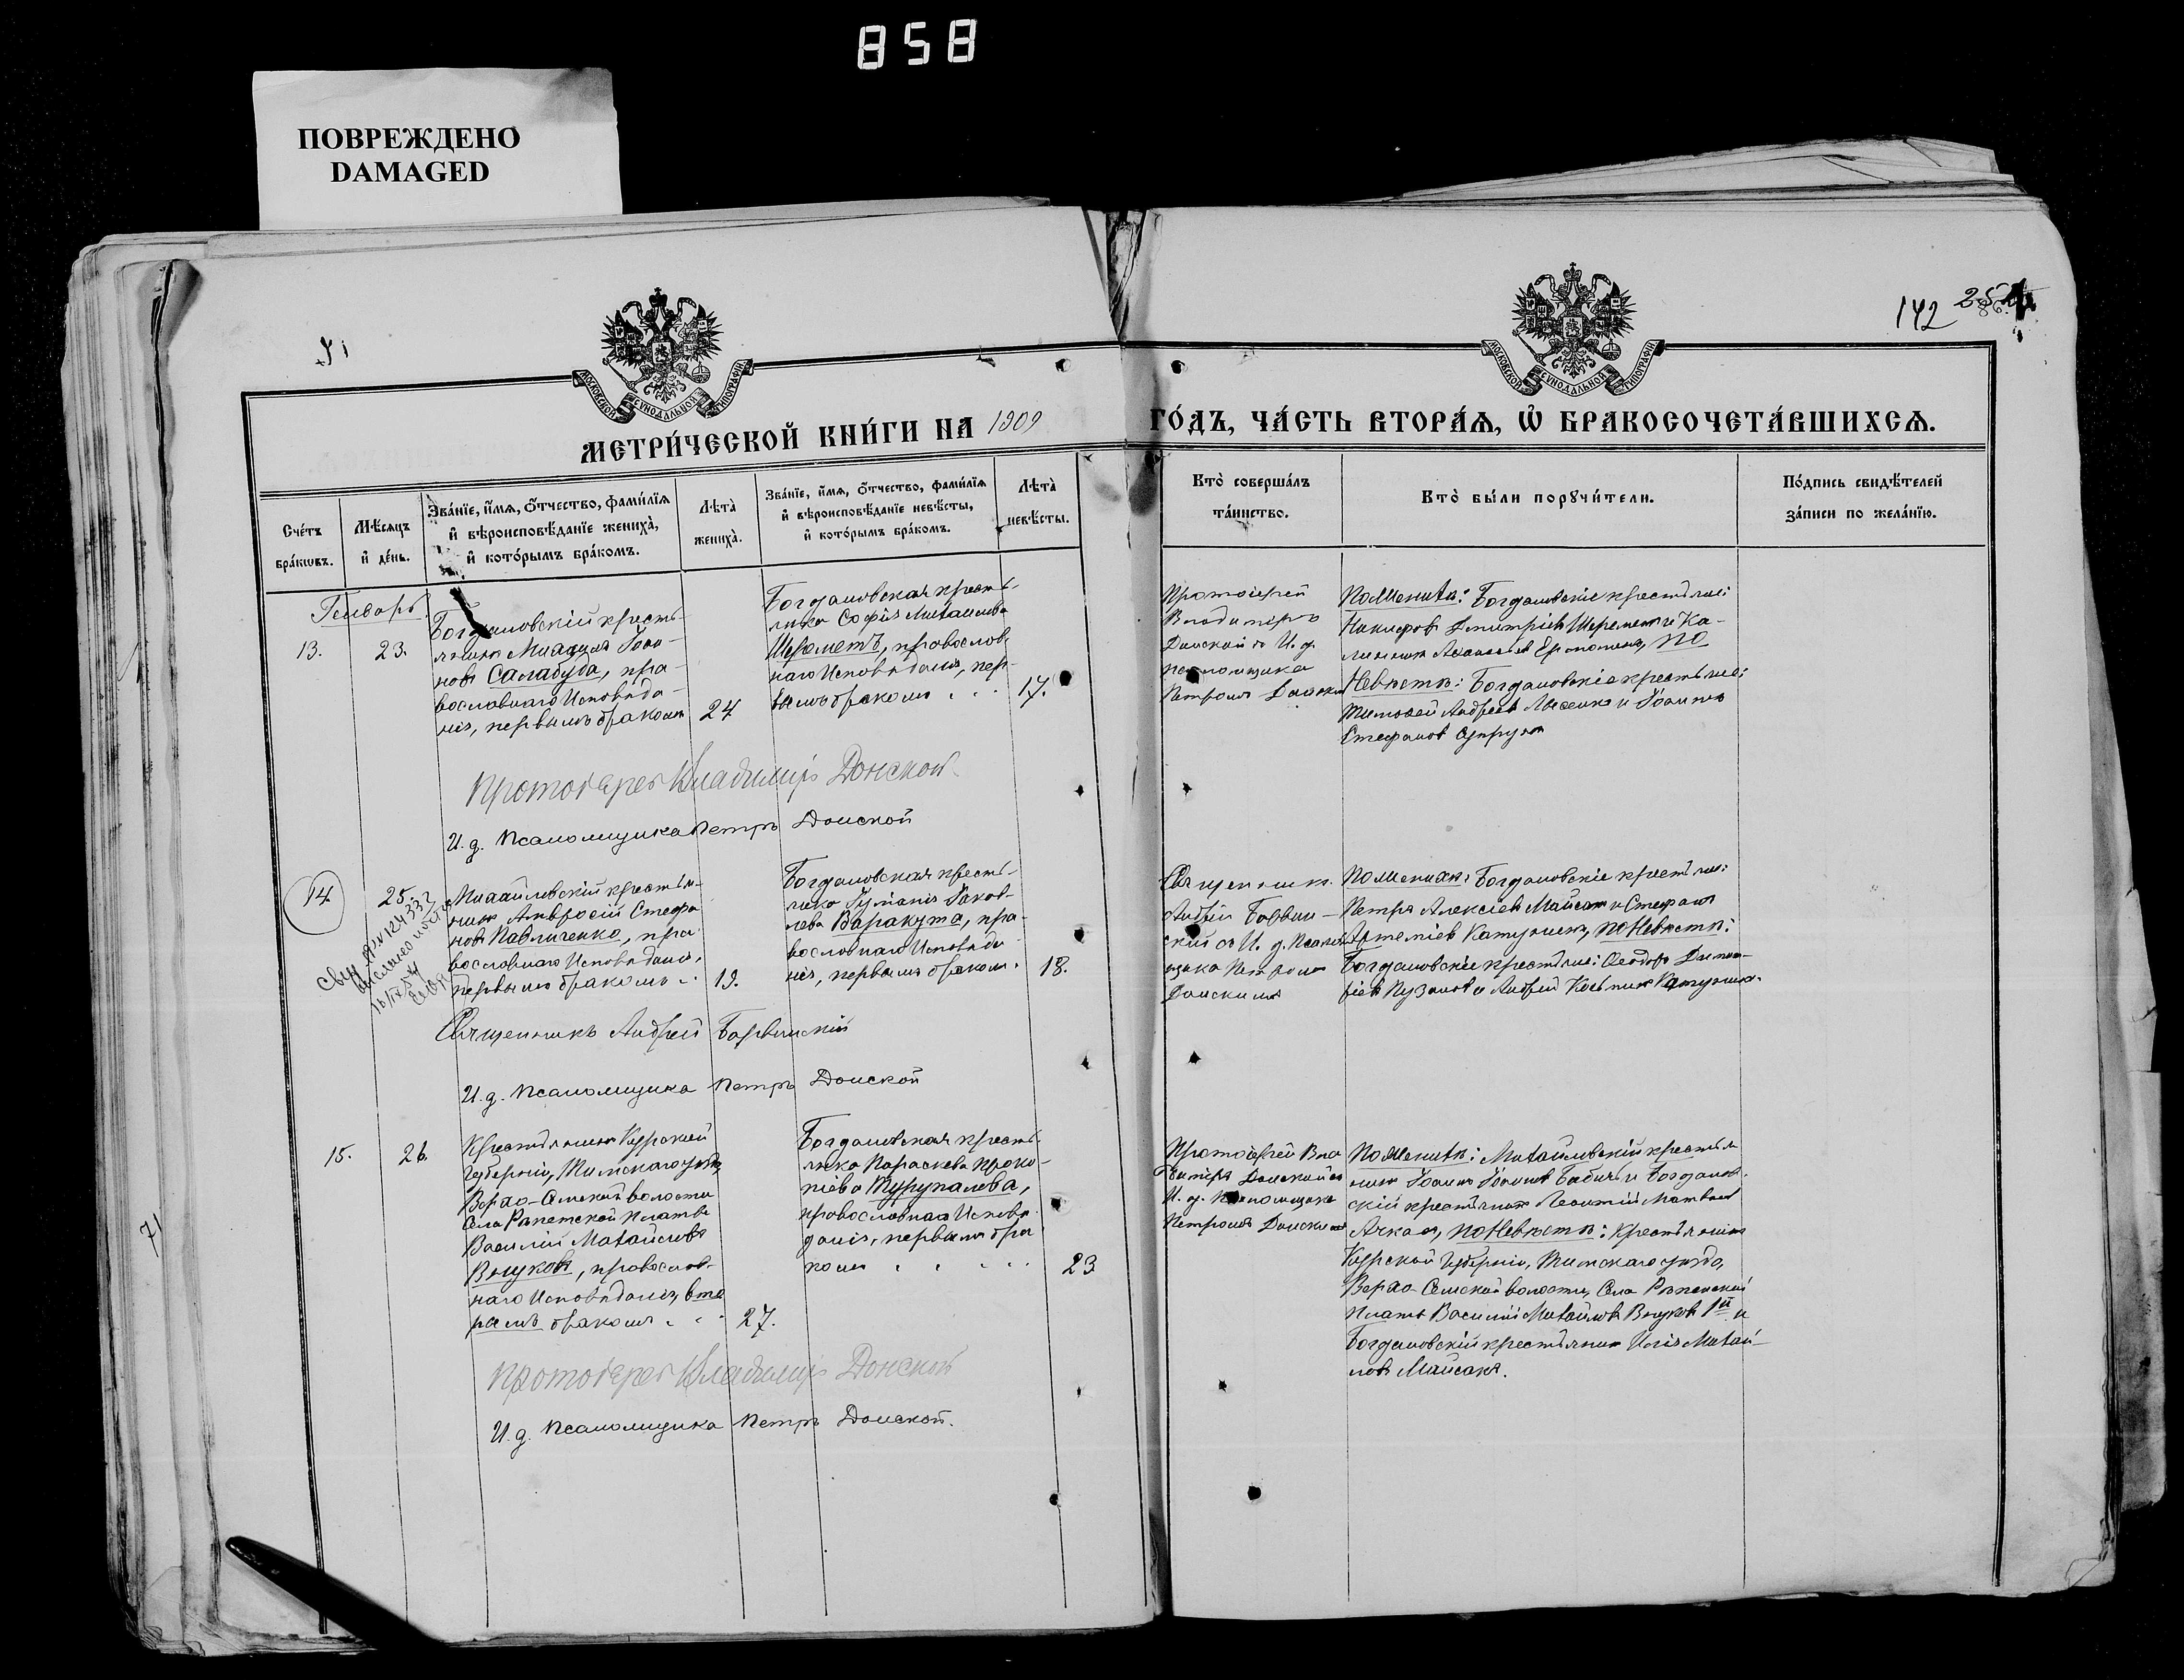 858
ПОВРЕЖДЕНО
DAMAGED
142
МОСКОВСКОЙ СѴНОДАЛЬНОЙ ТИПОГРАФІИ
МОСКОВСКОЙ СѴНОДАЛЬНОЙ ТИПОГРАФІИ
МЕТРИ́ЧЕСКОЙ КНИ́ГИ НА 1909 ГО́ДЪ, ЧА́СТЬ ВТОРА́Ѧ, Ѿ БРАКОСОЧЕТА́ВШИХСѦ.
Сче́тъ
бра́кѡвъ.
Мѣ́сяцъ
и҆ де́нь.
Зва́нїе, и҆́мѧ, ѻ҆́тчество, фами́лїѧ
и҆ вѣроисповѣ́данїе жениха̀,
и҆ кото́рымъ бра́комъ.
Лѣта̀
жениха̀.
Зва́нїе, и҆́мѧ, ѻ҆́тчество, фами́лїѧ
и҆ вѣроисповѣ́данїе невѣ́сты,
и҆ кото́рымъ бра́комъ.
Лѣта̀
невѣ́сты.
Кто̀ соверша́лъ
та́инство.
Кто̀ бы́ли порꙋчи́тели.
По́дпись свидѣ́телей
за́писи по жела́нїю.
Генварь.
13.
23.
Богдановскій кресть-
янинъ Михаилъ Іоан-
новъ Салабуда, пра-
вославнаго Исповѣда-
нія, первымъ бракомъ
24
Богдановская кресть-
янка Софія Михаилова
Шереметъ, православ
наго Исповѣданія, пер-
вымъ бракомъ . . .
17.
Протоіерей
Владиміръ
Донской съ И. д.
псаломщика
Петромъ Донским
По Женихѣ: Богдановскіе крестьяне:
Никифоръ Дмитріевъ Шереметъ и Ка-
линникъ Аѳанасьевъ Ермоленко, По
Невѣстѣ: Богдановскіе крестьяне:
Тимоѳей Андреевъ Лысенко и Іоаннъ
Стефановъ Супрунъ
Протоіерей Владиміръ Донской
И. д. Псаломщика Петръ Донской
14
25.
Михайловскій крестья-
нинъ Амвросій Стефа
новъ Павличенко, пра
вославнаго Исповѣданія,
первымъ бракомъ ..
19.
Богдановская кресть-
янка Іуліанія Іаков-
лева Варакута, пра-
вославнаго Исповѣда-
нія, первымъ бракомъ.
18.
Священникъ
Андрей Барвин-
скій съ И. д. Псалом
щика Петромъ
Донскимъ
По Женихѣ: Богдановскіе крестьяне:
Петръ Алексіевъ Майсакъ и Стефанъ
Артеміевъ Катушенко, По Невѣстѣ:
Богдановскіе крестьяне: Ѳеодоръ Дими-
Священникъ Андрей Барвинскій
И. д. Псаломщика Петръ Донской
15.
26.
Крестьянинъ Курской
Губерніи, Тимскаго уѣзда,
Верхо-Семской волости
Василій Михайловъ
Внуковъ, православ-
наго Исповѣданія, вто
рымъ бракомъ . . .
27.
Богдановская кресть-
янка Параскева Проко-
піева Турупалова,
православнаго Исповѣ
данія, первымъ бра
комъ . . . . .
23
Протоіерей Вла
диміръ Донской съ
И. д. Псаломщика
Петромъ Донскимъ
По Женихѣ: Михайловскій крестья
нинъ Іоаннъ Іоанновъ Бабичъ и Богданов-
скій крестьянинъ Леонтій Матвеевъ
По Невѣстѣ: Крестьянинъ
Курской Губерніи, Тимскаго уѣзда,
Верхо-Семской волости, Села
Василій Михайловъ Внуковъ 1й и
Богдановскій крестьянинъ Илія Михай-
ловъ Майсакъ.
Протоіерей Владиміръ Донской
И. д. Псаломщика Петръ Донской.
71